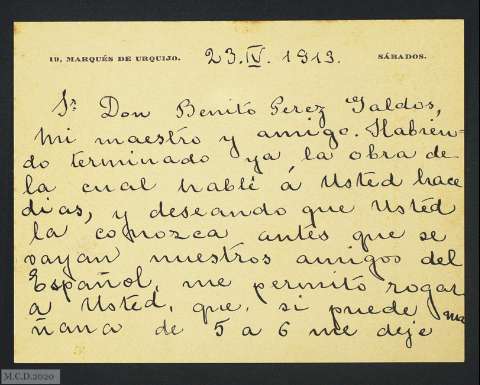 19, MARQUÉS DE URQUIJO. 23.IV.1913. SÁBADOS.
Sr. Don Benito Perez Galdos,
mi maestro y amigo. Habien-
do terminado ya, la obra de
la cual hablé á Usted hace
dias, y deseando que Usted
la conozca antes que se
vayan nuestros amigos del
Español, me permito rogar
a Usted, que, si puede ma
ñana de 5 a 6 me deje
M.C.D.2020